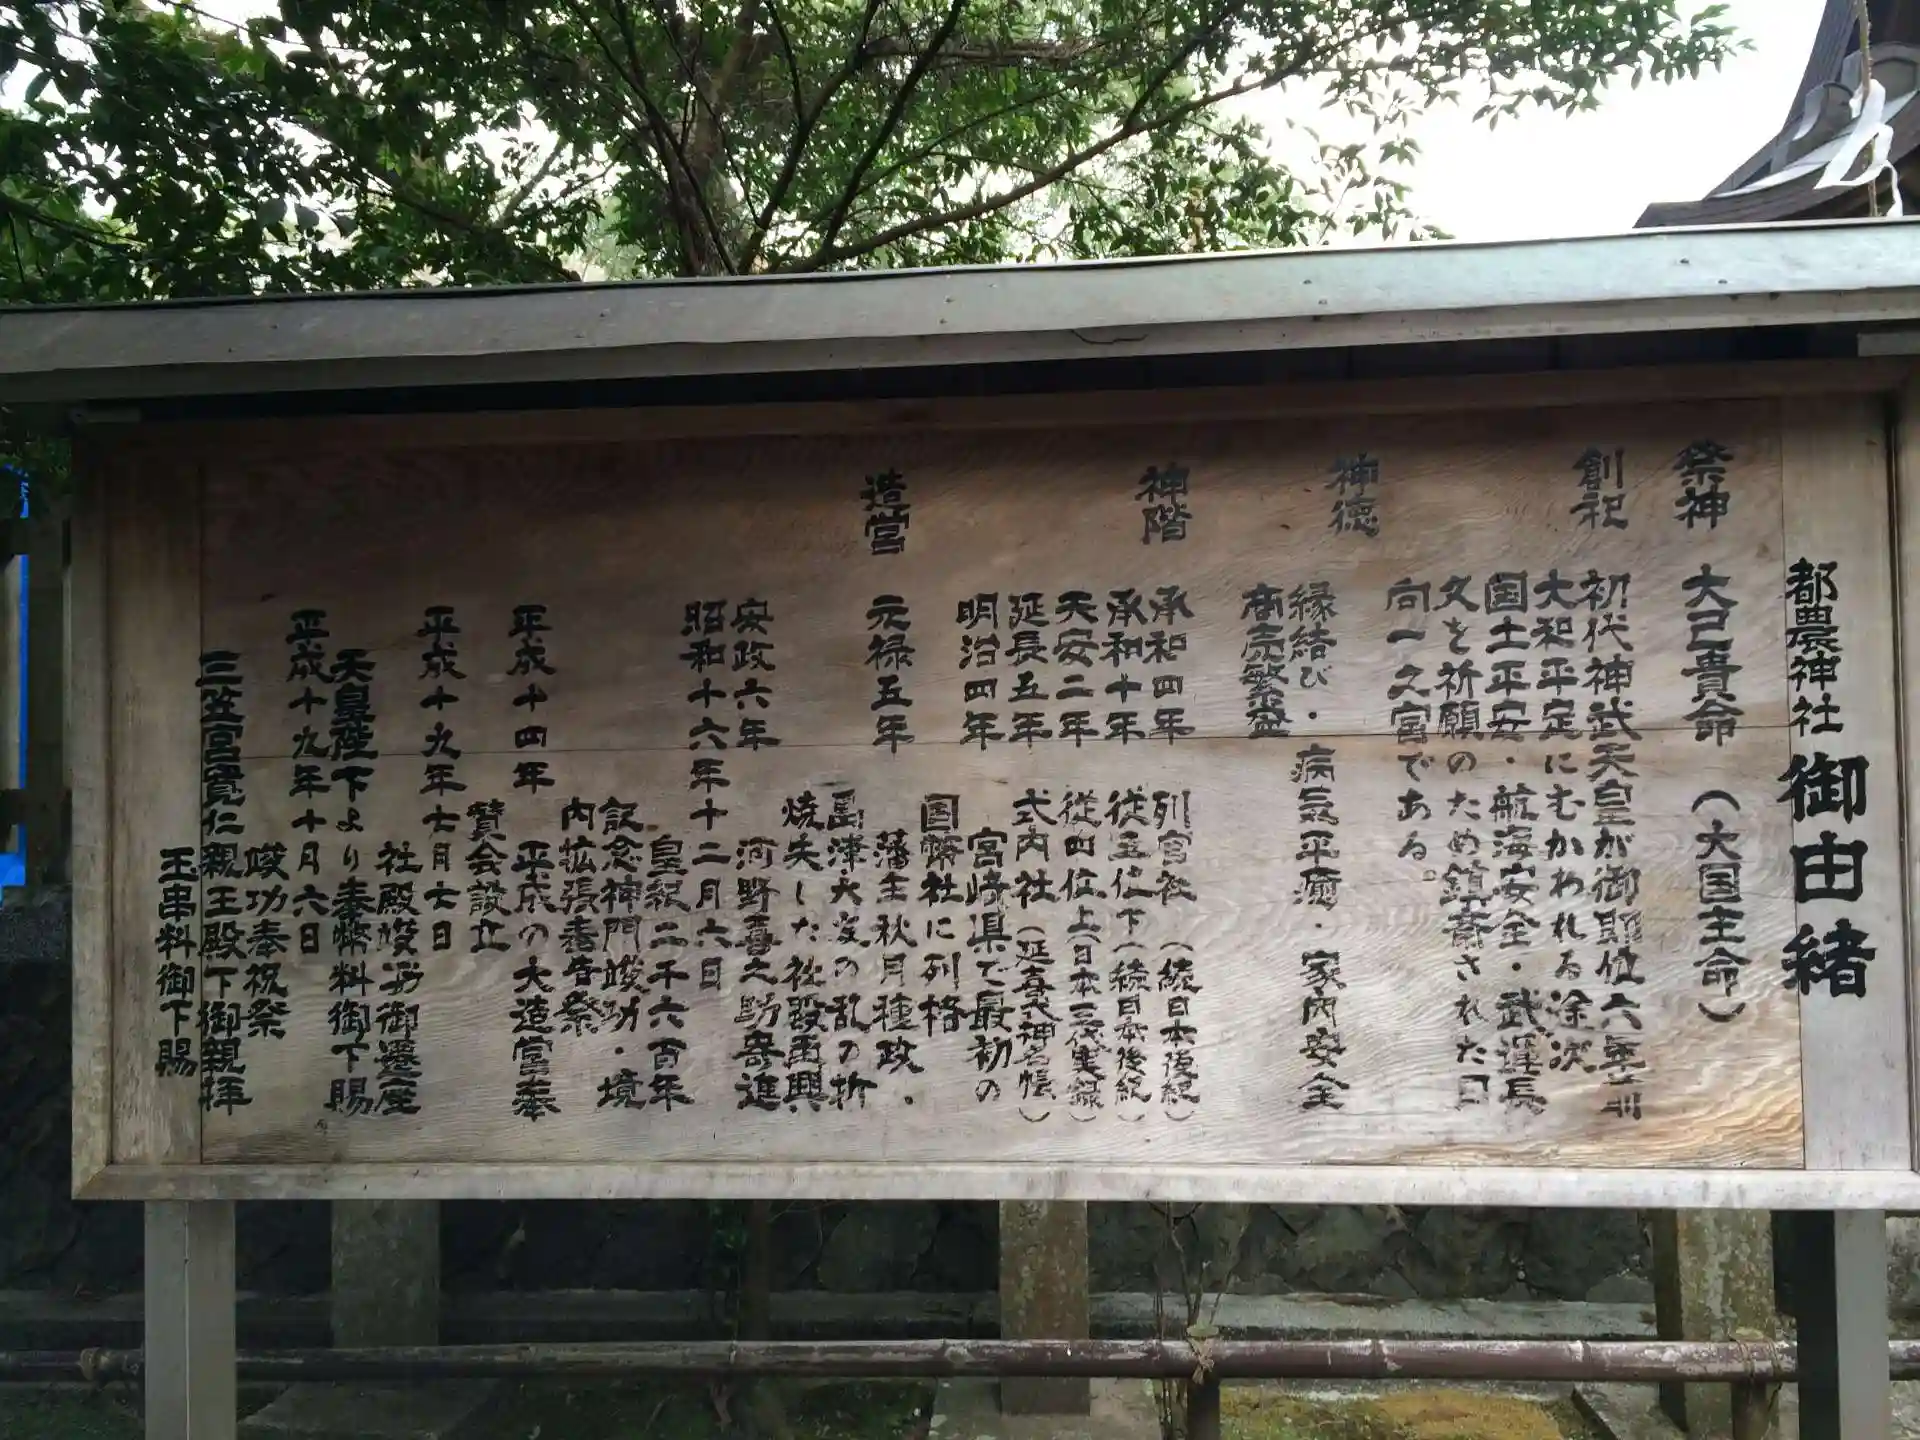 都農神社 御由緒
祭神 大己貴命 （大国主命）
創祀 初代神武天皇が御即位六年前
大和平定にむかわれる途次
国土平安・航海安全・武運長
久を祈願のため鎮斎された日
向一之宮である。
神徳 縁結び・病気平癒・家内安全
商売繁盛
神階 承和四年 列官社 （続日本後紀）
承和十年 従五位下（続日本後紀）
天安二年 従四位上（日本三代実録）
延長五年 式内社（延喜式神名帳）
明治四年 宮崎県で最初の
国幣社に列格
造営 元禄五年 藩主秋月種政・
島津大友の乱の折
焼失した社殿再興
安政六年 河野喜之助寄進
昭和十六年十二月六日
皇紀二千六百年
記念神門竣功・境
内拡張奉告祭
平成十四年 平成の大造営奉
賛会設立
平成十九年七月七日
社殿竣功御遷座
天皇陛下より奉幣料御下賜
平成十九年十月六日
竣功奉祝祭
三笠宮寛仁親王殿下御親拝
玉串料御下賜